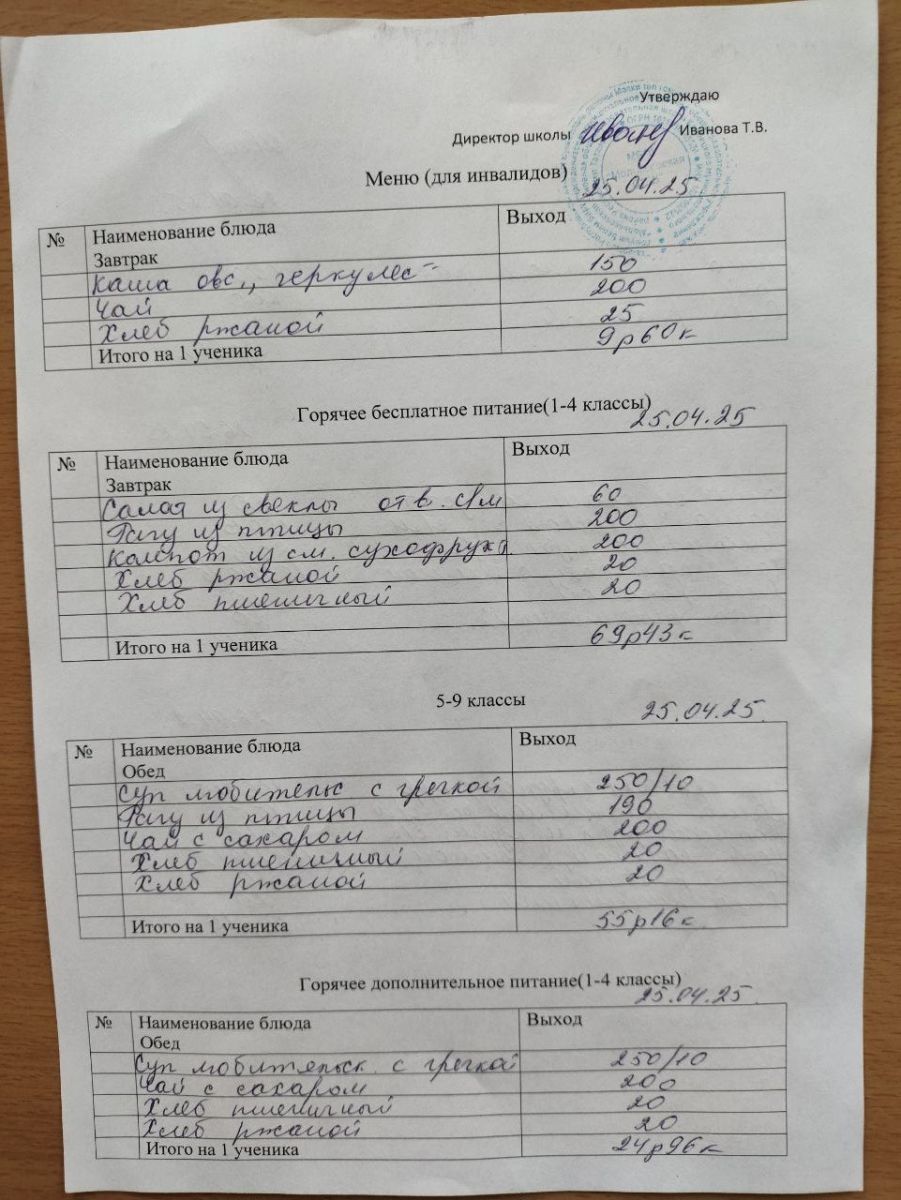 Утверждаю
Директор школы Иванова Т.В.
Меню (для инвалидов)
25.04.25
№ Наименование блюда Выход
Завтрак
каша овс „ геркулес" 150
Чай 200
Хлеб ржаной 25
Итого на 1 ученика 9р60к
Горячее бесплатное питание(1-4 классы)
25.04.25
№ Наименование блюда Выход
Завтрак
Салат из свеклы отв. с/м 60
Рагу из птицы 200
Компот из см. сухофрукт 200
Хлеб ржаной 20
Хлеб пшеничный 20
Итого на 1 ученика 69р43к
5-9 классы
25.04.25.
№ Наименование блюда Выход
Обед
Суп любительс с гречкой 250/10
Рагу из птицы 190
Чай с сахаром 200
Хлеб пшеничный 20
Хлеб ржаной 20
Итого на 1 ученика 55р16к
Горячее дополнительное питание(1-4 классы)
25.04.25.
№ Наименование блюда Выход
Обед
Суп любительск. с гречкой 250/10
Чай с сахаром 200
Хлеб пшеничный 20
Хлеб ржаной 20
Итого на 1 ученика 24р96к